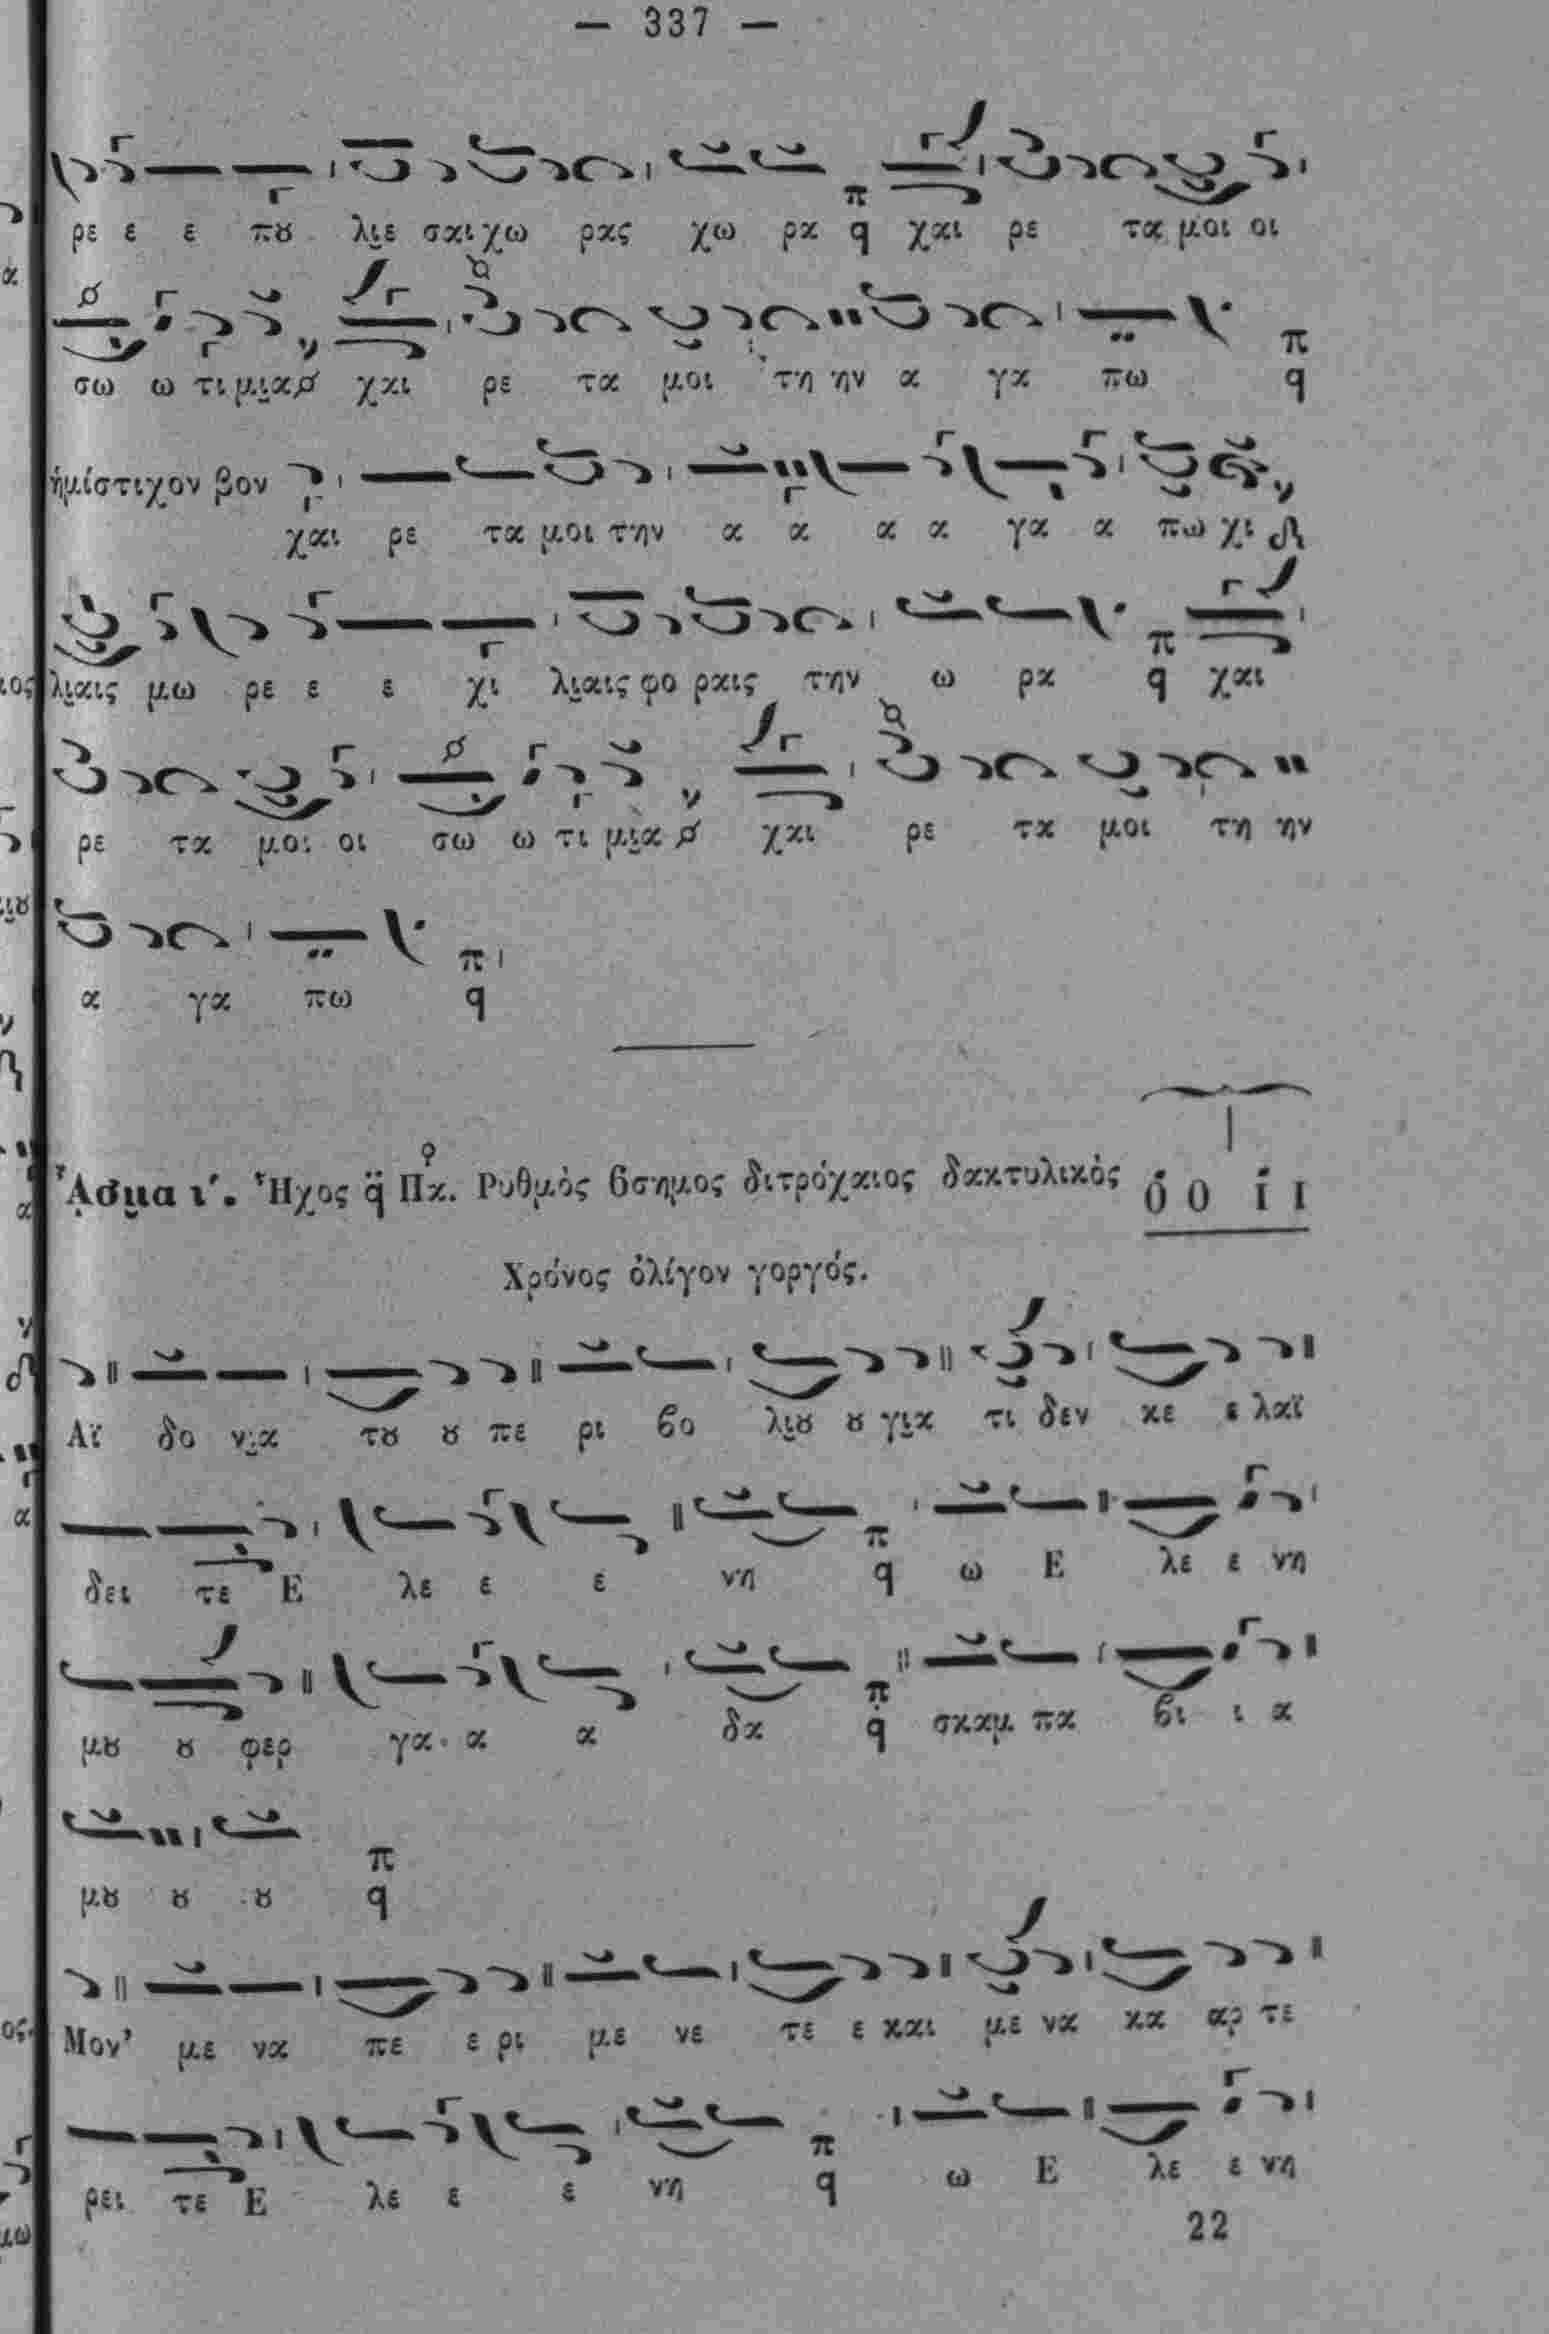 — 337 —
ρε ε ε πȣ λι̯ε σαι χω ρας χω ρα π q χαι ρε τα μοι οι
σω ω τι μι̯α χαι ρε τα μοι τη ην α γα πω π q
ἡμίστιχον βον
χαι ρε τα μοι την α α α α γα α πω χι
λι̯αις μω ρε ε ε χι λι̯αις φο ραις την ω ρα π q χαι
ρε τα μοι οι σω ω τι μι̯α χαι ρε τα μοι τη ην
α γα πω π q
ᾎσμα ι΄. Ἦχος q̈ Πα. Ρυθμὸς 6σημος διτρόχαιος δακτυλικὸς Ó O Í I
Χρόνος ὀλίγον γοργός.
Αϊ δο νι̯α τȣ ȣ πε ρι βο λι̯ȣ ȣ γι̯α τι δεν κε ε λαϊ
δει τε Ε λε ε ε νη π q ω Ε λε ε νη
μȣ ȣ φερ γα α α δα π q σκαμ πα βι ι α
μȣ ȣ ȣ π q
Μον' με να πε ε ρι με νε τε ε και με να κα αρ τε
ρει τε Ε λε ε ε νη π q ω Ε λε ε νη
22